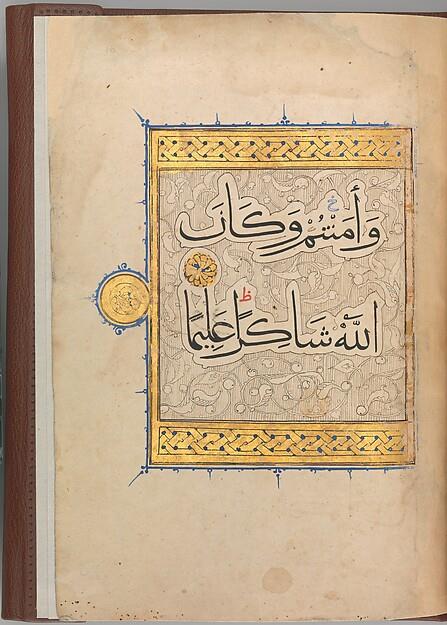 وَأَمَنْتُمْ وَكَانَ
اللَّهُ شَاكِرًا عَلِيمًا